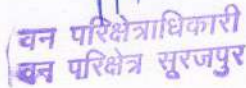 वन परिक्षेत्राधिकारी
वन परिक्षेत्र सूरजपुर